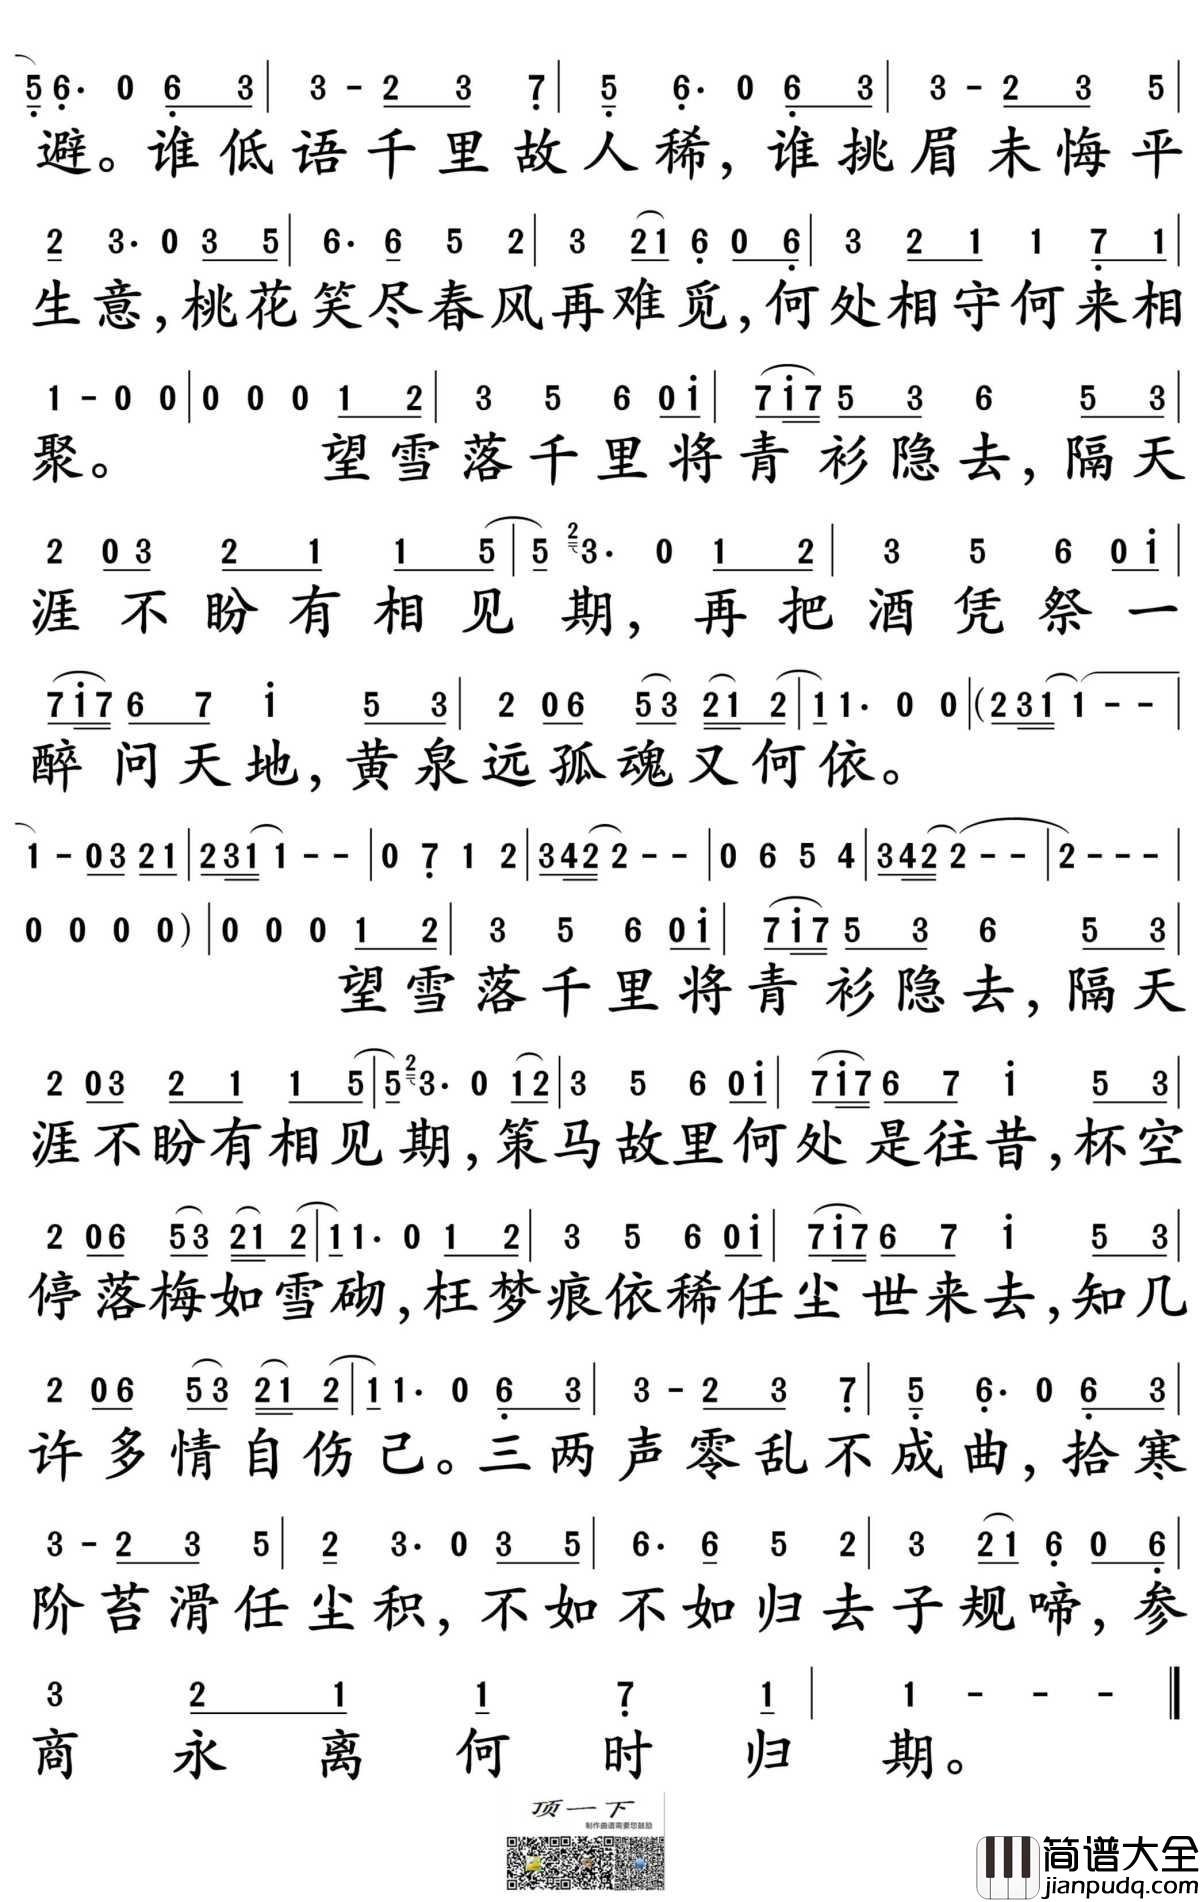 5 6· 0 6 3 | 3 - 2 3 7 | 5 6· 0 6 3 | 3 - 2 3 5 |
避。谁低语千里故人稀，谁挑眉未悔平
2 3· 0 3 5 | 6· 6 5 2 | 3 21 6 0 6 | 3 2 1 1 7 1 |
生意，桃花笑尽春风再难觅，何处相守何来相
1 - 0 0 | 0 0 0 1 2 | 3 5 6 0 i | 7i7 5 3 6 5 3 |
聚。 望雪落千里将青衫隐去，隔天
2 0 3 2 1 1 5 | 5 2 3· 0 1 2 | 3 5 6 0 i |
涯不盼有相见期，再把酒凭祭一
7i7 6 7 i 5 3 | 2 0 6 5 3 2 1 2 | 1 1· 0 0 | (2 3 1 1 - -
醉问天地，黄泉远孤魂又何依。
1 - 0 3 2 1 | 2 3 1 1 - - | 0 7 1 2 | 3 4 2 2 - - | 0 6 5 4 | 3 4 2 2 - - | 2 - - - |
0 0 0 0) | 0 0 0 1 2 | 3 5 6 0 i | 7i7 5 3 6 5 3 |
望雪落千里将青衫隐去，隔天
2 0 3 2 1 1 5 | 5 2 3· 0 1 2 | 3 5 6 0 i | 7i7 6 7 i 5 3 |
涯不盼有相见期，策马故里何处是往昔，杯空
2 0 6 5 3 2 1 2 | 1 1· 0 1 2 | 3 5 6 0 i | 7i7 6 7 i 5 3 |
停落梅如雪砌，枉梦痕依稀任尘世来去，知几
2 0 6 5 3 2 1 2 | 1 1· 0 6 3 | 3 - 2 3 7 | 5 6· 0 6 3 |
许多情自伤己。三两声零乱不成曲，拾寒
3 - 2 3 5 | 2 3· 0 3 5 | 6· 6 5 2 | 3 2 1 6 0 6 |
阶苔滑任尘积，不如不如归去子规啼，参
3 2 1 1 7 1 | 1 - - - ‖
商永离何时归期。
顶一下
制作曲谱需要您鼓励
简谱大全
jianpudq.com